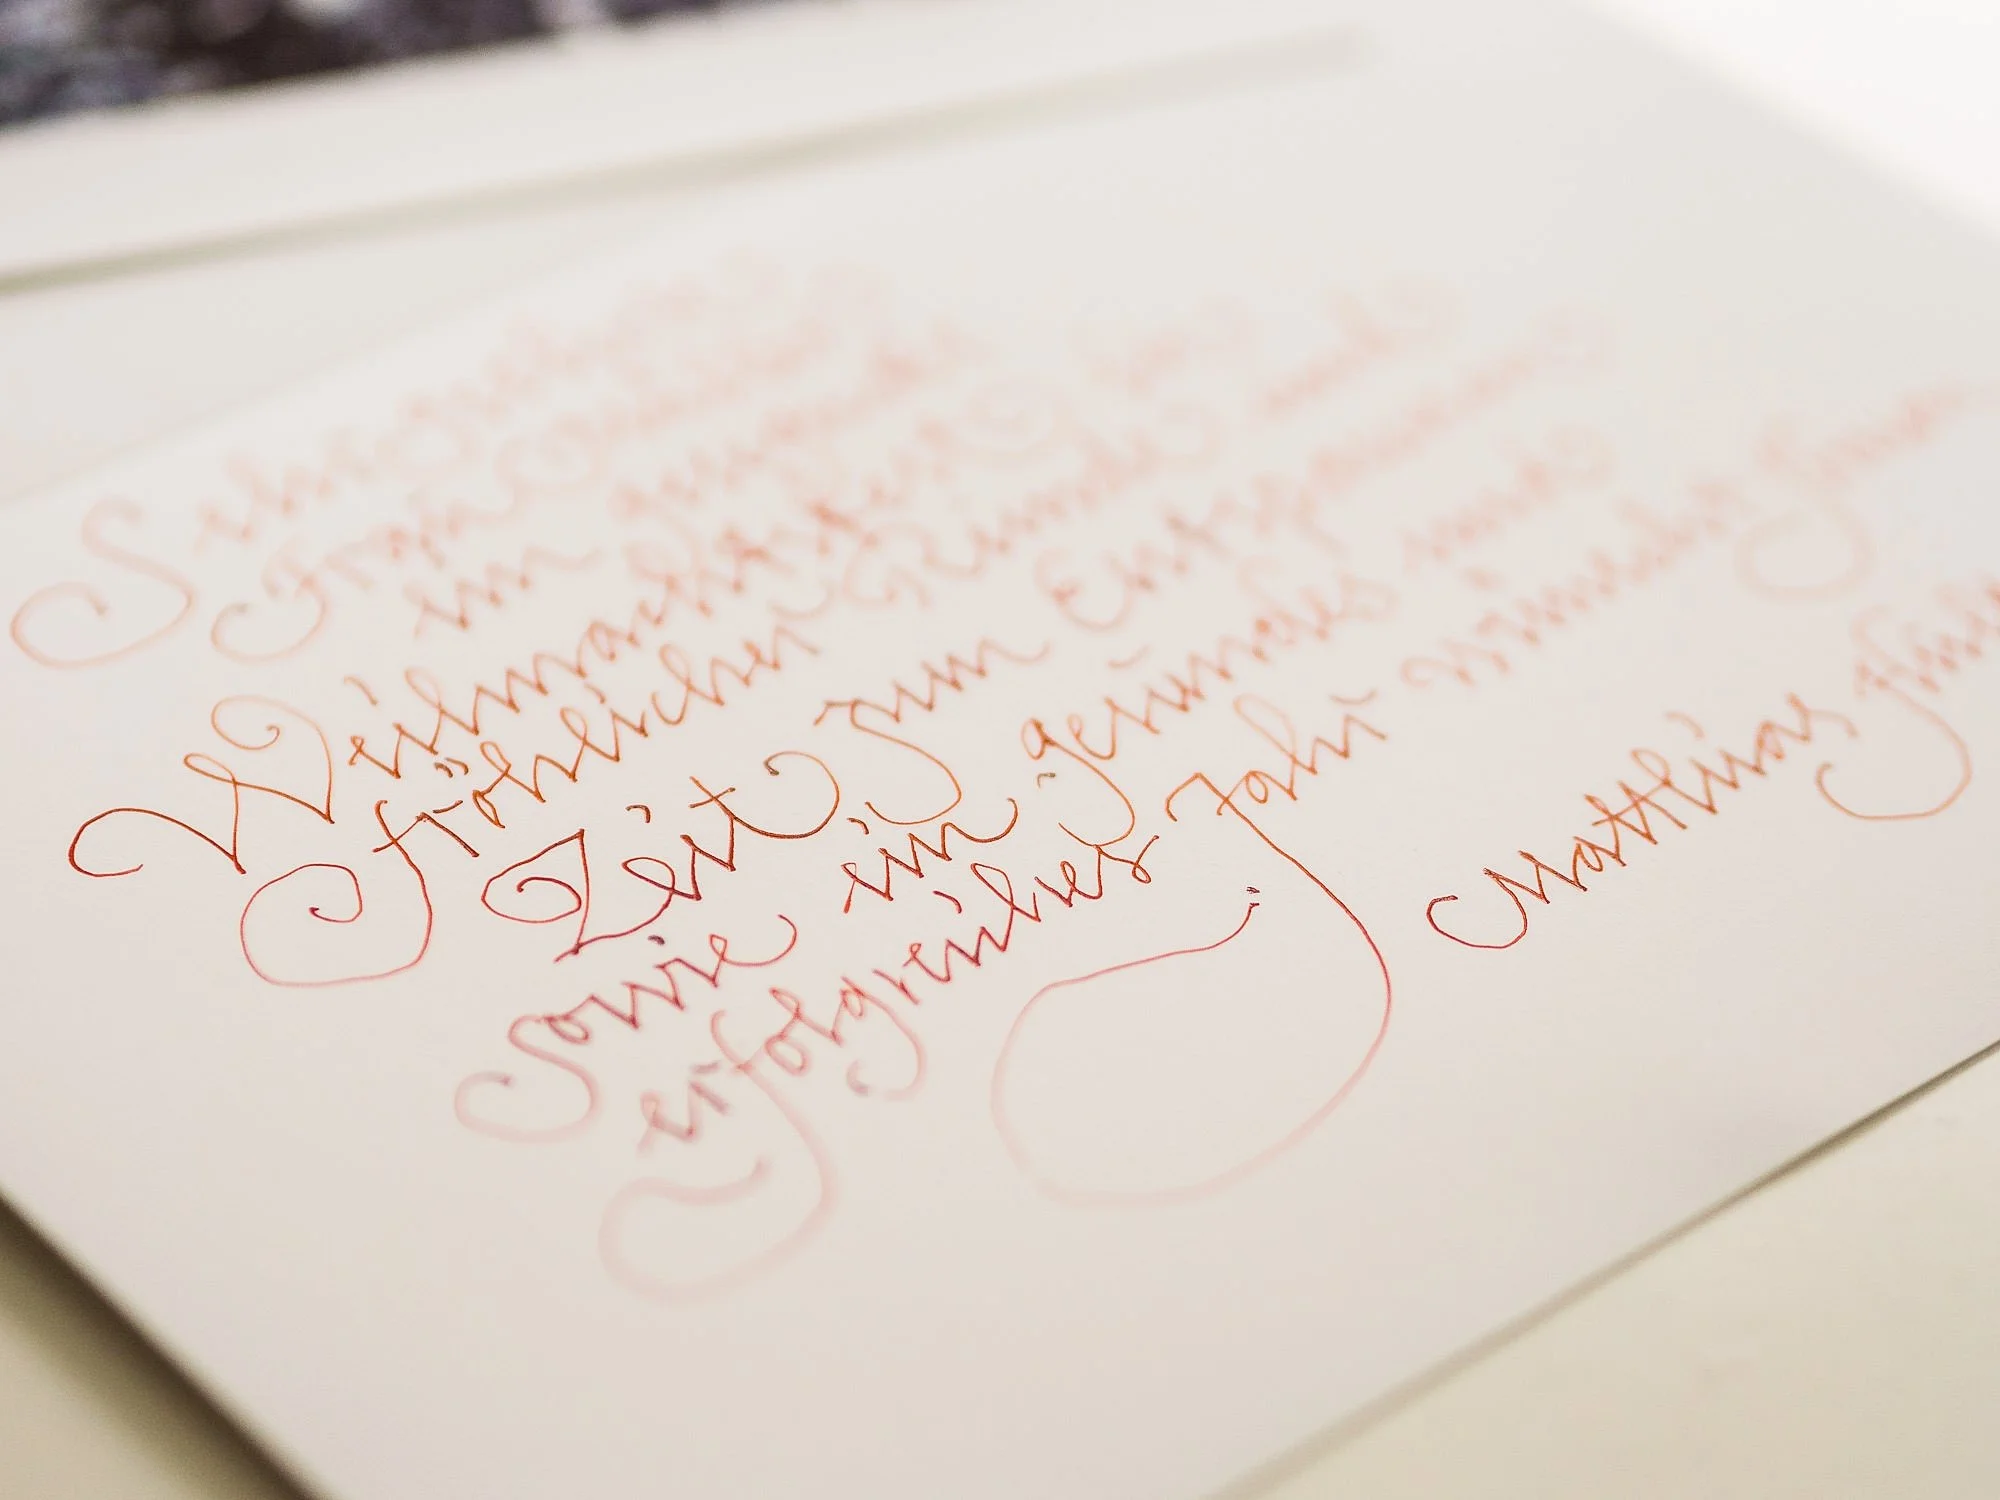 Frau
ein
Weihnachtsfest in
fröhlicher Runde und
Zeit zum Entspannen
sowie ein gesundes und
erfolgreiches Jahr wünscht Ihnen
Matthias